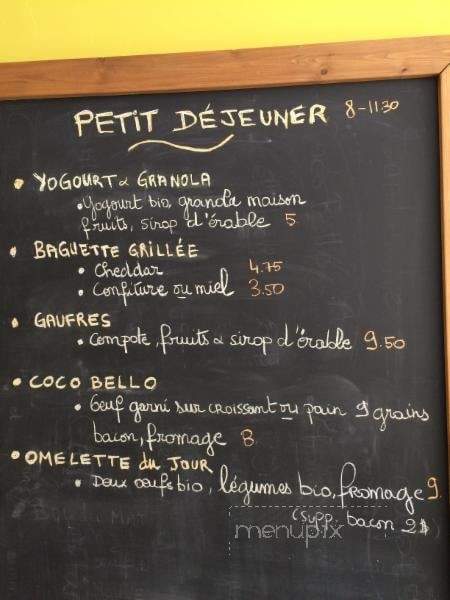 PETIT DÉJEUNER 8-11:30
• YOGOURT & GRANOLA
• Yogourt bio, granola maison
fruits, sirop d'érable 5
• BAGUETTE GRILLÉE
• Cheddar 4.75
• Confiture ou miel 3.50
• GAUFRES
• Compote, fruits & sirop d'érable 9.50
• COCO BELLO
• Oeuf garni sur CROISSANT ou pain 9 grains
bacon, fromage 8
• OMELETTE du JOUR
• Deux oeufs bio, légumes bio, fromage 9.
(supp. bacon 2$)
menupix